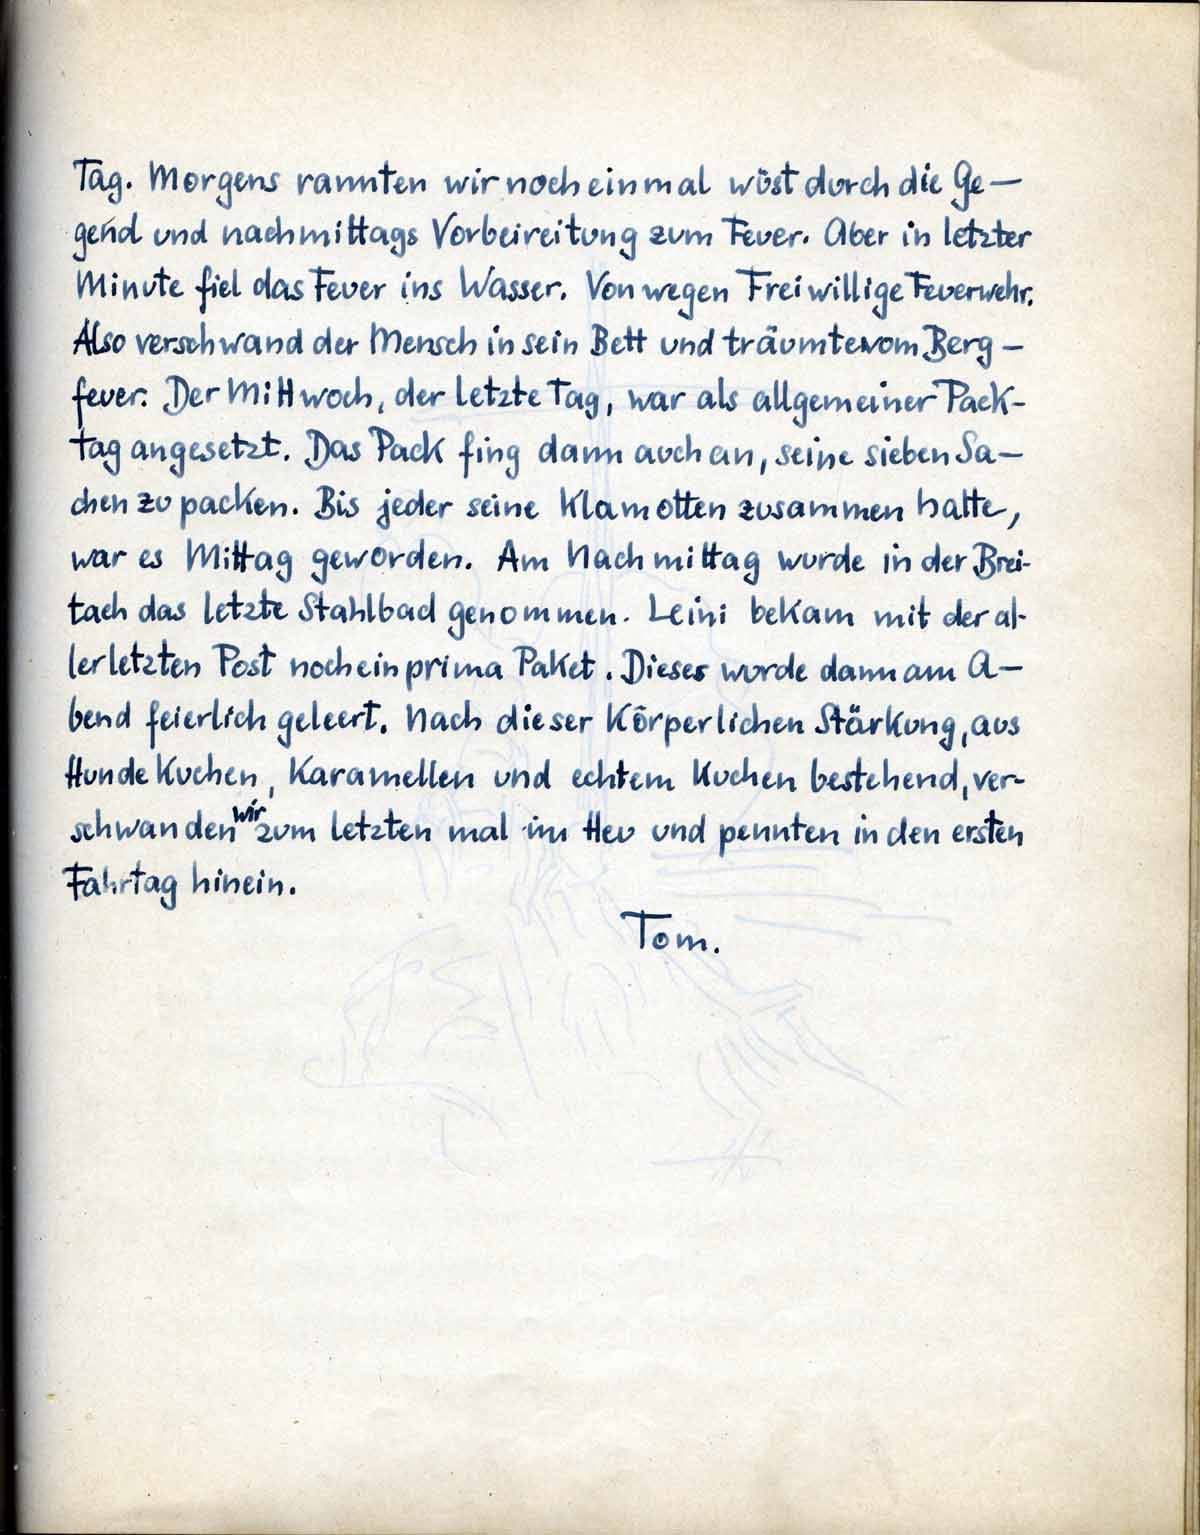 Tag. Morgens rannten wir noch einmal wüst durch die Ge-
gend und nachmittags Vorbeireitung zum Feuer. Aber in letzter
Minute fiel das Feuer ins Wasser. Von wegen Freiwillige Feuerwehr.
Also verschwand der Mensch in sein Bett und träumte vom Berg-
feuer. Der Mittwoch, der letzte Tag, war als allgemeiner Pack-
tag angesetzt. Das Pack fing dann auch an, seine sieben Sa-
chen zu packen. Bis jeder seine Klamotten zusammen hatte,
war es Mittag geworden. Am Nachmittag wurde in der Brei-
tach das letzte Stahlbad genommen. Leini bekam mit der al-
lerletzten Post noch ein prima Paket. Dieses wurde dann am A-
bend feierlich geleert. Nach dieser Körperlichen Stärkung, aus
Hunde Kuchen, Karamellen und echtem Kuchen bestehend, ver-
schwanden wir zum letzten mal im Heu und pennten in den ersten
Fahrtag hinein.
Tom.